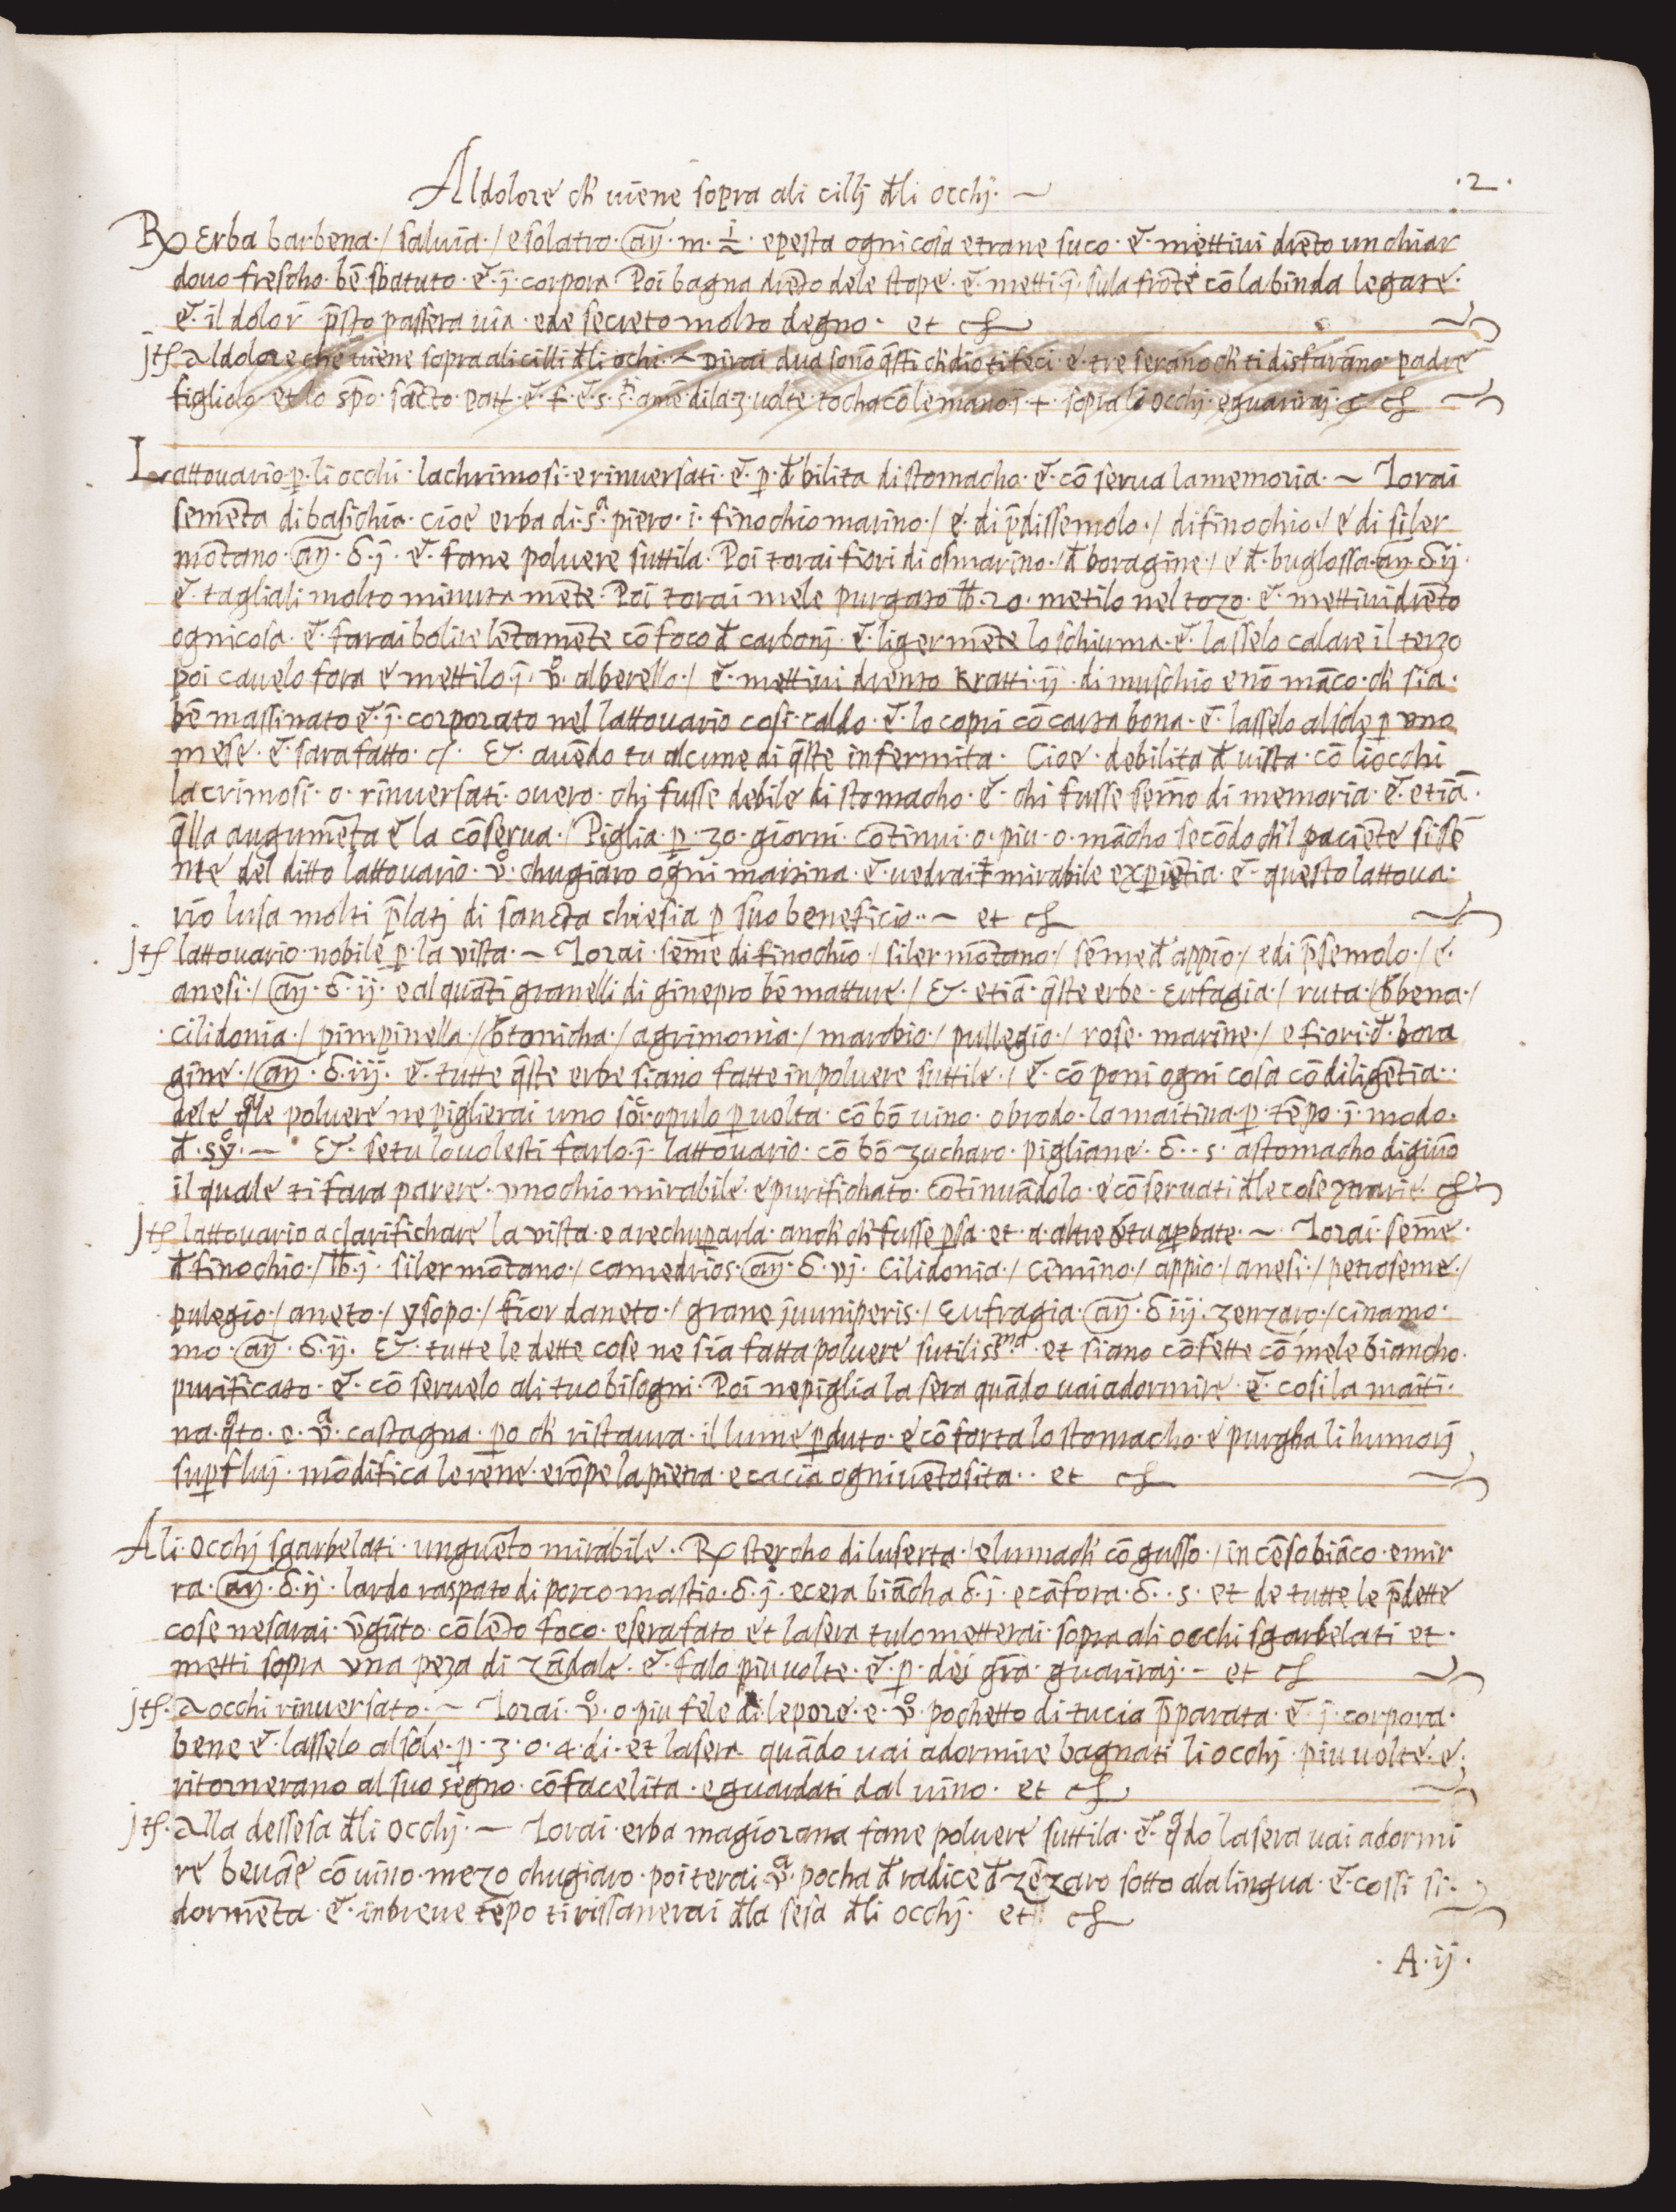 Al dolore ch̃ uiene sopra ali cillj đli occhj · ~
· 2 ·
℞ Erba barbena · / saluia · / e solatro · añ · m · ½ · e pesta ogni cosa e trane suco · e · mettiui drẽto un chiar
douo frescho · bẽ sbatuto · e · ĩ · corpora Poi bagna drẽto dele stope · e · metti · ĩ · sula frõte cõ la binda legare ·
e · il dolor p̃sto passera uia · ed e secreto molto degno · et
jtẽ Al dolore che uiene sopra ali cilli đli ochi · ~ Dirai dua sono q̃sti ch̃ dio ti feci · e · tre serãno ch̃ ti disfarãno · padre
figliolo · et lo sp̃o · sãcto · patt · e · f · e · s · s̃ · amẽ · di la · 3 · uolte · tocha cõ le mano · ĩ · + · sopra li occhj · e guarirai ·
Lattouario p̱ · li occhi · lachrimosi · e rinuersati · e · p̱ · đbilita di stomacho · e · cõserua la memoria · ~ Torai
semẽta di basichia · cioe erba di · s̃ · piero · i · finochio marino · / e · di p̃dissemolo · / di finochio · / e di siler
mõtano · añ · δ · j · e · fane poluere suttila · Poi torai fiori di osmarino · / đ boragine / e đ · buglossa · añ · δ ij ·
e · tagliali molto minuta mẽte · Poi torai mele purgato ℔ · 20 · metilo nel tozo · e · mettiui drẽto
ogni cosa · e · farai bolire lẽtamẽte cõ foco đ carbonj · e · ligermẽte lo schiuma · e · lasselo calare il terzo
poi cauelo fora e mettilo · ĩ · v̊ · alberello · / e · mettiui drento Kratti · ij · di muschio e nõ mãco · ch̃ sia ·
bẽ massinato e · ĩ · corporato nel lattouario cosi · caldo · e · lo copri cõ carta bona · e · lasselo al sole p̱ uno
mese · e · sara fatto · Et · auẽdo tu alcune di q̃ste infermita · Cioe · debilita đ uista · cõ li occhi
lacrimosi · o · rinuersati · ouero · chi fusse debile di stomacho · e · chi fusse semo di memoria · e · etiã ·
q̃lla augumẽta e la cõserua · / Piglia · p̱ · 30 · giorni · cõtinui · o · piu · o · mãcho secõdo ch̃l paciẽte si sẽ
nte del ditto lattouario · v̊ · chugiaro ogni matina · e · uedrai mirabile exp̱iẽtia · e · questo lattoua ·
rio lusa molti p̃latj di sancta chiesia p̱ suo beneficio · · ~ et
jtẽ lattouario · nobile p̱ · la vista · ~ Torai · sẽme di finochio / siler mõtano · / sẽme đ appio · / e di p̃semolo · / e ·
anesi · / añ · δ · ij · e al quãti granelli di ginepro bẽ matture · / Et · etiã · q̃ste erbe · Eufragia · / ruta · / ƀbena · /
· cilidonia · / pimpinella · / ƀtonicha · / agrimonia · / marobio · / pullegio · / rose · marine · / e fiori · đ · bora
gine · / añ · δ · iij · e · tutte q̃ste erbe siano fatte in poluere suttile · / e · cõponi ogni cosa cõ diligẽtia · ·
dele q̃le poluere ne piglierai uno scropulo p̱ uolta · cõ bõ uino · o brodo · la maitina · p̱ · tẽpo · ĩ · modo ·
đ · sy̆ · ~ Et · se tu lo uolesti farlo · ĩ · lattouario · cõ bõ zucharo · pigliane · δ · · s · a stomacho digiũo
il quale ti fara parere · uno chio mirabile · e purifichato · cõtinuãdolo · e cõseruati đle cose ɔtrarie ·
jtẽ lattouario a clarifichare la vista · e a rechup̱arla · anch̃ ch̃ fusse p̱sa · et · a altre · ~ Torai · semẽ ·
đ finochio · / ℔ · j · siler mõtano · / camedrios · añ · δ · vj · Cilidonia · / Cimino · / appio · / anesi · / petroseme · /
pulegio · / aneto · / ysopo · / fior daneto · / grane juuniperis · / Eufragia · añ · δ iij · zenzaro · / cinamo ·
mo · añ · δ · ij · Et · tutte le dette cose ne sia fatta poluere sutilissᵐᵃ · et siano cõfette cõ mele biancho ·
purificato · e · cõ seruelo ali tuo bisogni · Poi ne piglia la sera quãdo uai a dormire · e · cosi la maiti ·
na · q̃to · e · vᵃ · castagna · p̱o ch̃ ristaura · il lume p̱duto · e cõforta lo stomacho · e purgha li humorj
sup̱flui · mõdifica le rene · e rõpe la pietra · e cacia ogni uẽtosita · · et
Ali occhj sgarbelati · unguẽto mirabile · ℞ stercho di luserta · / e lumach̃ cõ gusso · / in cẽso biãco · e mir
ra · añ · δ · ij · lardo raspato di porco mastio · δ · j · e cera biãcha δ · j · e cãfora · δ · · s · et de tutte le p̃dette
cose ne farai · ṽgũto · cõ lẽto foco · e sera fato et la sera tu lo metterai · sopra ali occhi sgarbelati et ·
metti sopra vna peza di zãdale · e · falo piu uolte · e · p̱ · dei grã · guarirai · ~ et
jtẽ · A occhi rinuersato · ~ Torai · v̊ · o piu fele di lepore · e · v̊ · pochetto di tucia p̃parata · e · ĩ · corpora ·
bene e · lasselo al sole · p̱ · 3 · o · 4 · di · et la sera quãdo uai a dormire bagnati li occhj · piu uolte · e ·
ritornerano al suo segno · cõ facelita · e guardati dal uino · et
jtẽ · Alla dessesa đli occhj · ~ Torai · erba magiorana fane poluere suttila · e · q̃do la sera uai a dormi
re beuãe cõ uino · mezo chugiaro · poi terai · vᵃ · pocha đ radice đ zẽzaro sotto ala lingua · e · cossi si ·
dormẽta · e · in breue tẽpo ti rissanerai đla sesa đli occhj · et
· A · ij ·